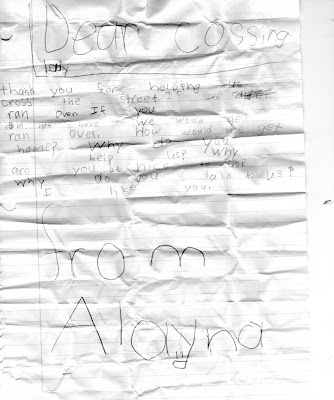 Dear Cossing
thank you for helping us
cross the street
ran over If you
not have we would get
ran over. How would we get
home? Why do you
help us? Why
are you nice to
why do you talk to us?
I like you.
from
Alayna